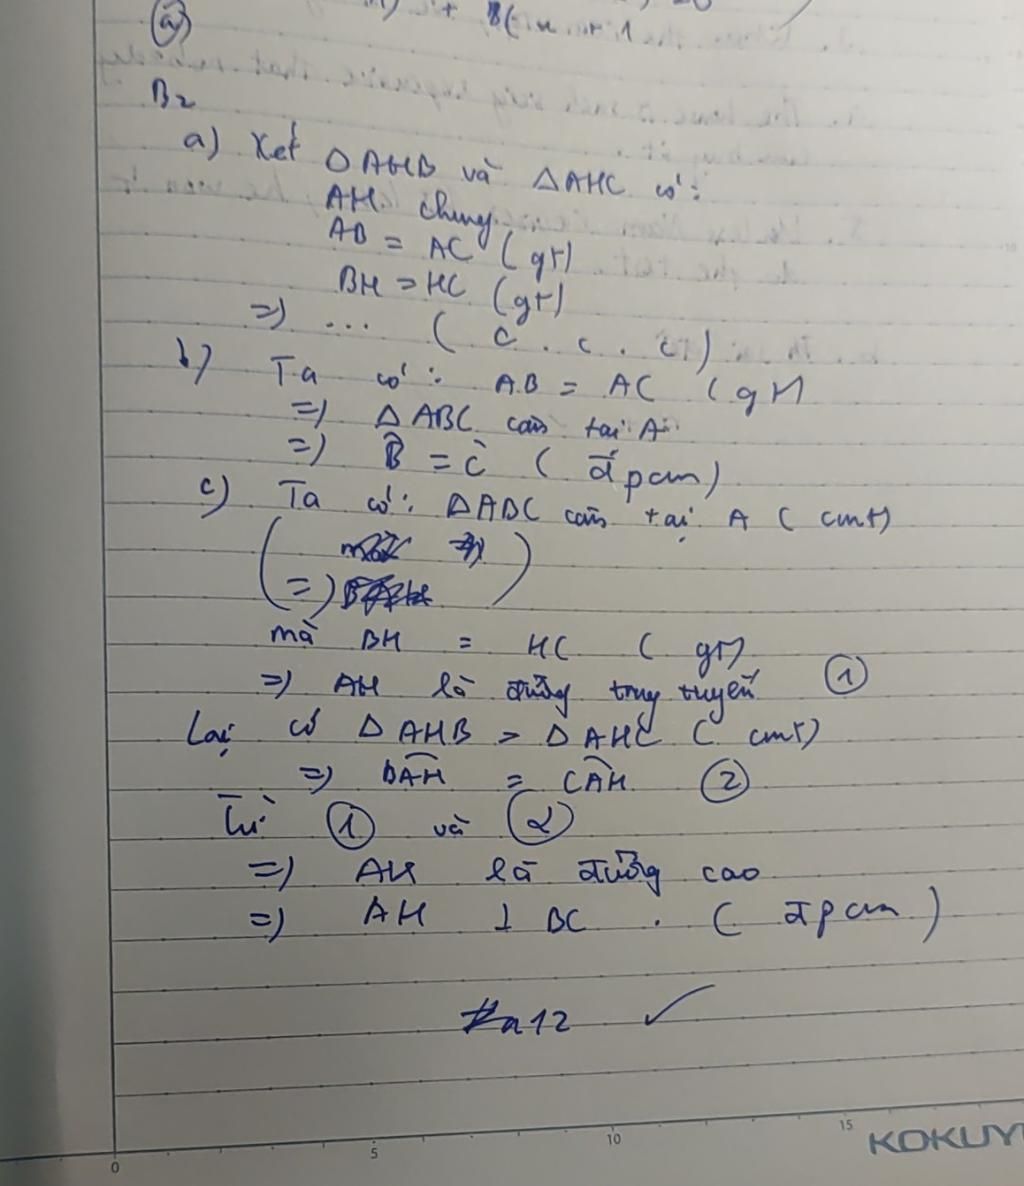 a)
B2
a) Xét △AHB và △AHC có:
AH chung
AB = AC (gt)
BH = HC (gt)
=> ... (c.c.c)
b) Ta có: AB = AC (gt)
=> △ABC cân tại A
=> B̂ = Ĉ (đpcm)
c) Ta có: △ABC cân tại A (cmt)
( =>
=> )
mà BH = HC (gt)
=> AH là đường trug tuyến ①
Lại có △AHB = △AHC (cmt)
=> BAH = CAH ②
Từ ① và ②
=> AH là đường cao
=> AH ⊥ BC . (đpcm)
#a12 ✓
0 5 10 15
KOKUY